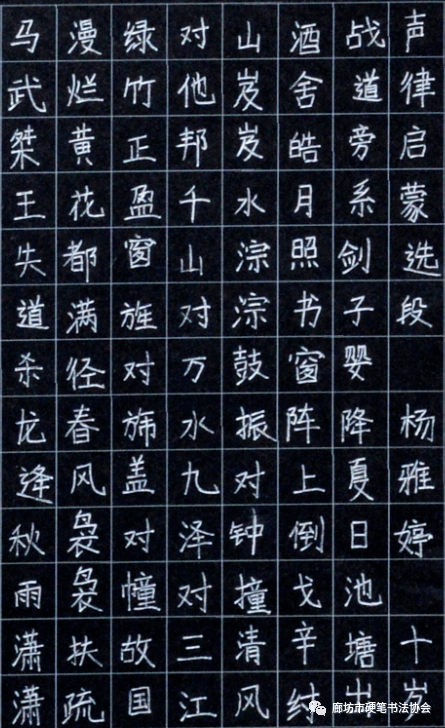 声律启蒙选段 杨雅婷 十岁
战道旁系剑子婴降夏日池塘出
酒舍皓月照书窗阵上倒戈辛纣
山岌岌水淙淙鼓振对钟撞清风
对他邦千山对万水九泽对三江
绿竹正盈窗旌对旆盖对幢故国
漫烂黄花都满径春风袅袅扶疏
马武桀王失道杀龙逄秋雨潇潇
廊坊市硬笔书法协会